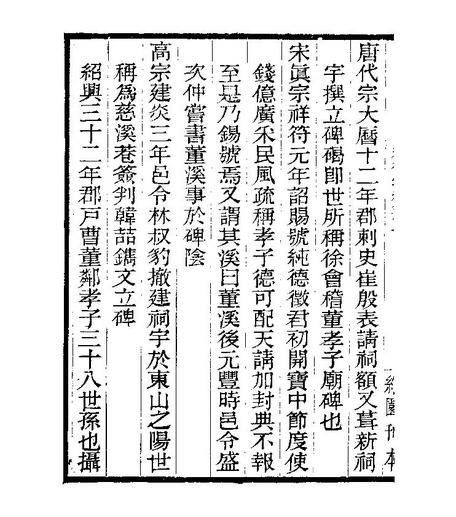 唐代宗大曆十二年郡刺史崔殷表請祠額又葺新祠
宇撰立碑碣卽世所稱徐會稽董孝子廟碑也
宋眞宗祥符元年詔賜號純德徵君初開寶中節度使
錢億廣采民風疏稱孝子德可配天請加封典不報
至是乃錫號焉又謂其溪曰董溪後元豐時邑令盛
次仲嘗書董溪事於碑陰
高宗建炎三年邑令林叔豹撤建祠宇於東山之陽世
稱爲慈溪菴簽判韓喆鐫文立碑
紹興三十二年郡戸曹董鄰孝子三十八世孫也攝